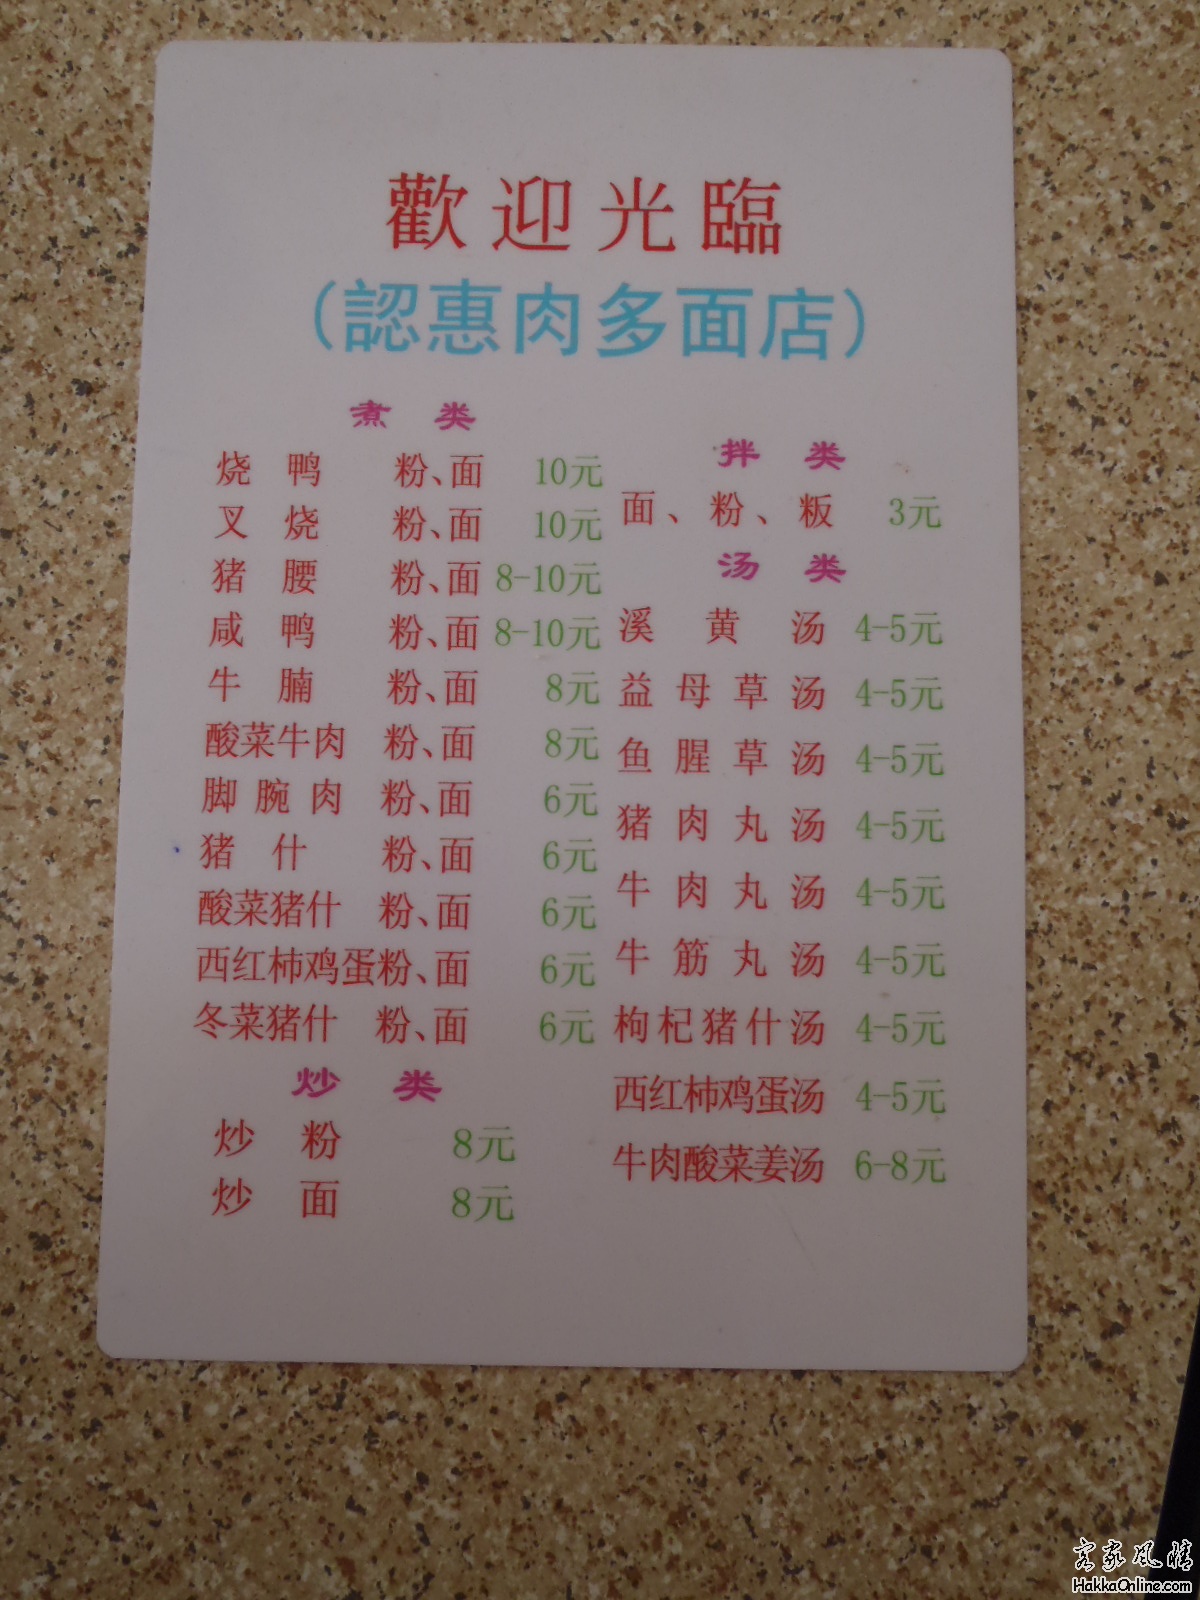 歡迎光臨
（認惠肉多面店）
煮 类
烧鸭 粉、面 10元
叉烧 粉、面 10元
猪腰 粉、面 8-10元
咸鸭 粉、面 8-10元
牛腩 粉、面 8元
酸菜牛肉 粉、面 8元
脚腕肉 粉、面 6元
猪什 粉、面 6元
酸菜猪什 粉、面 6元
西红柿鸡蛋粉、面 6元
冬菜猪什 粉、面 6元
炒 类
炒粉 8元
炒面 8元
拌 类
面、粉、粄 3元
汤 类
溪黄汤 4-5元
益母草汤 4-5元
鱼腥草汤 4-5元
猪肉丸汤 4-5元
牛肉丸汤 4-5元
牛筋丸汤 4-5元
枸杞猪什汤 4-5元
西红柿鸡蛋汤 4-5元
牛肉酸菜姜汤 6-8元
客家风情
HakkaOnline.com